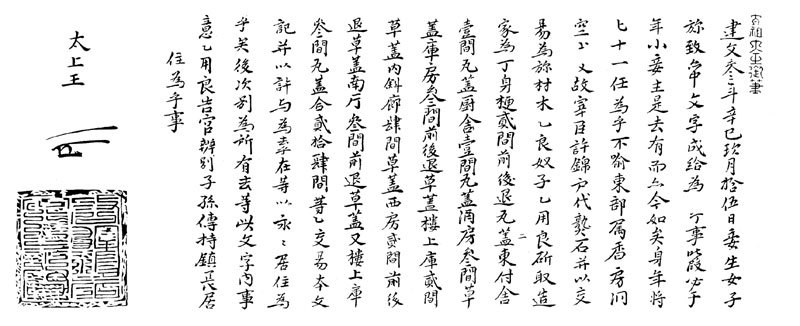 太祖大王御筆
建文叄年辛巳玖月拾伍日妾生女子
旀致亦中文字成給爲 丁事叱段必于
年小妾生是去有而亦今如矣身年將
七十一任爲乎不喩東部屬香房洞
空 又故宰臣許錦戶代熟石幷以交
易爲旀材木乙良奴子乙用良斫取造
家爲丁身梗貳間前後退瓦蓋東付舍
壹間瓦蓋廚舍壹間瓦蓋酒房叄間草
蓋庫房叄間前後退草蓋樓上庫貳間
草蓋內斜廊肆間草蓋西房貳間前後
退草蓋南厅叄間前退草蓋又樓上庫
叄間瓦蓋合貳拾肆間等乙交易本文
記幷以許与爲去在等以永〻居住爲
乎矣後次別爲所有去等此文字內事
意乙用良告官辨別子孫傳持鎭長居
住爲乎事
太上王